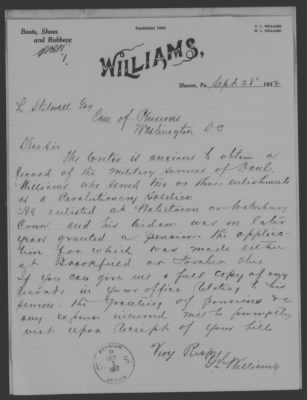 Boots, Shoes
and Rubbers
Established 1842
WILLIAMS,
Sharon, Pa. Sept 25 1912
L Stilwell Esq
Com of Pensions
Washington D C
Dear Sir
The writer is anxious to obtain a
record of the military services of Danl.
Williams who served two or three enlistments
as a Revolutionary Soldier.
He enlisted at Watertown or Waterbury
Conn. and his widow was in later
years granted a pension. The applica-
tion for which was made either
at Brookfield or Ohio
If you can give me a full copy of any
records in your office relating to his
services. the granting of pensions &c
any expense incurred will be promptly
met upon receipt of your bill
Very Respy
Williams